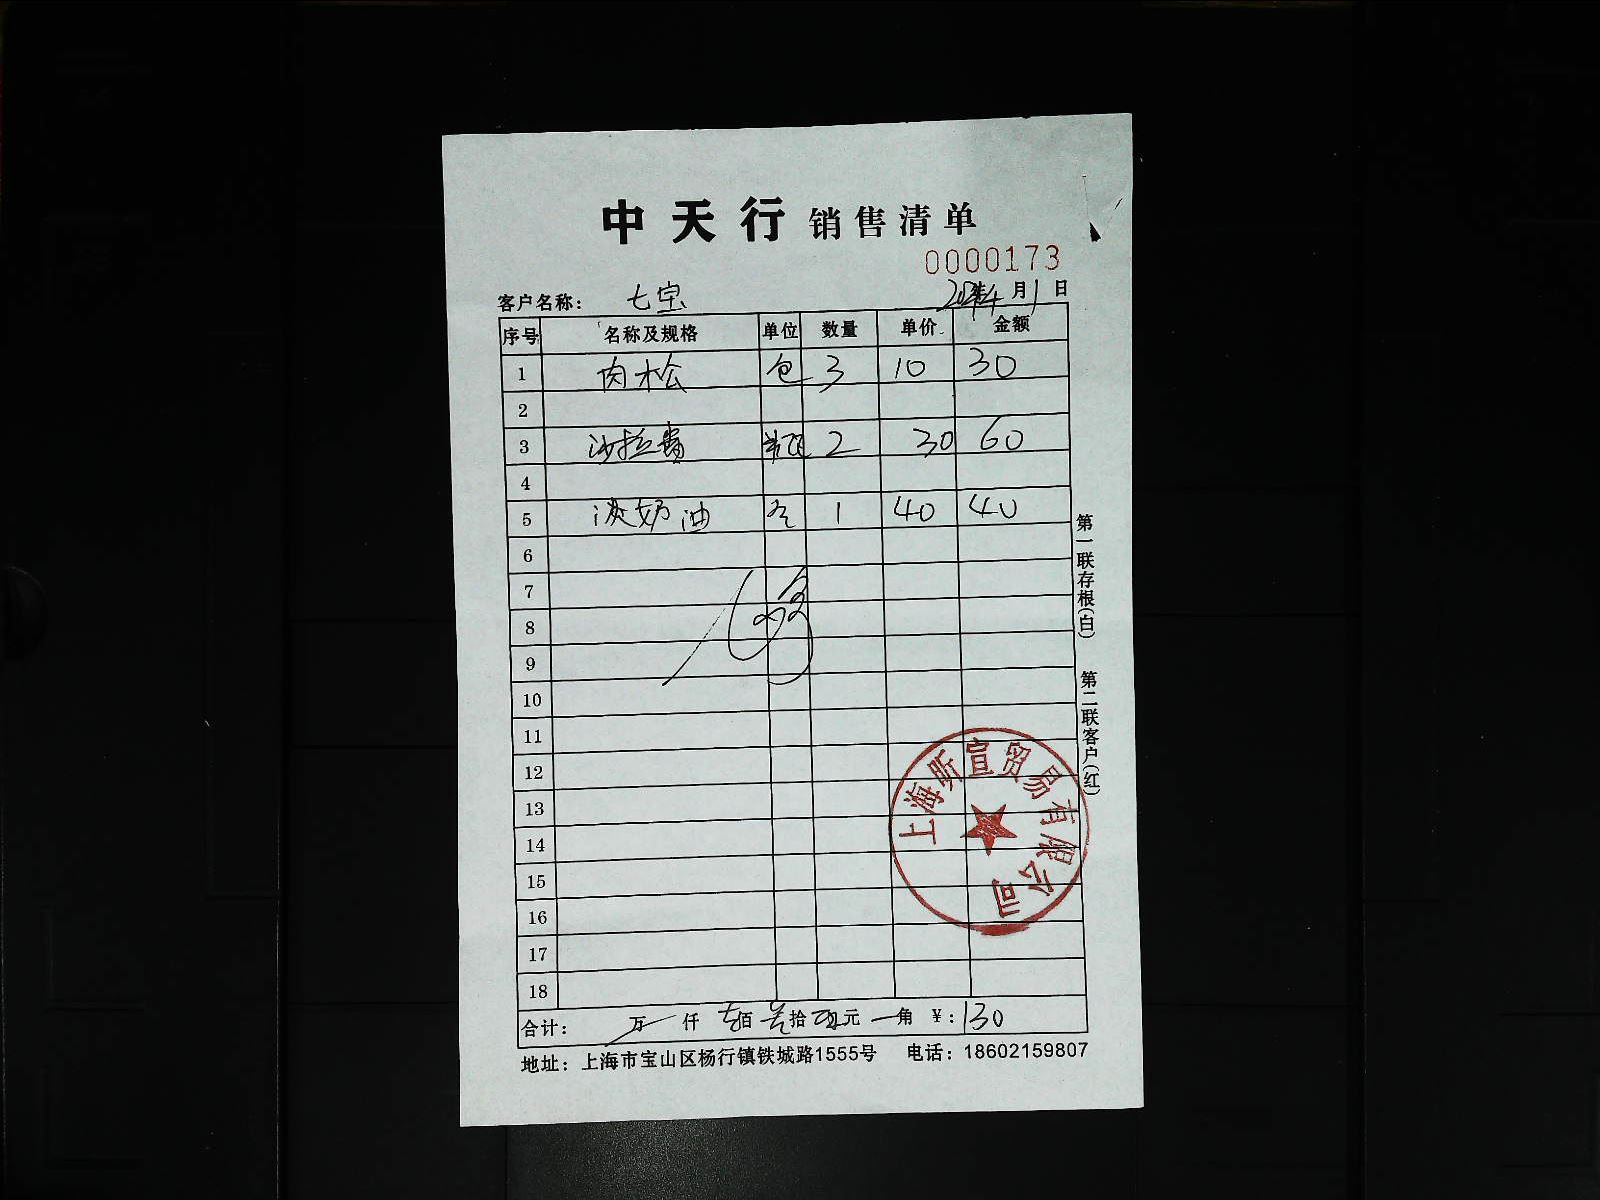 中天行 销售清单
0000173
客户名称： 七宝 2024年4月1日
序号 名称及规格 单位 数量 单价 金额
1 肉松 包 3 10 30
2
3 沙拉酱 瓶 2 30 60
4
5 淡奶油 1 40 40
6
7
8
9
10
11
12
13
14
15
16
17
18
合计： 万 仟 壹佰 叁拾 元 角 ¥：130
地址：上海市宝山区杨行镇铁城路1555号 电话：18602159807
第一联存根（白） 第二联客户（红）
上海昕宣贸易有限公司